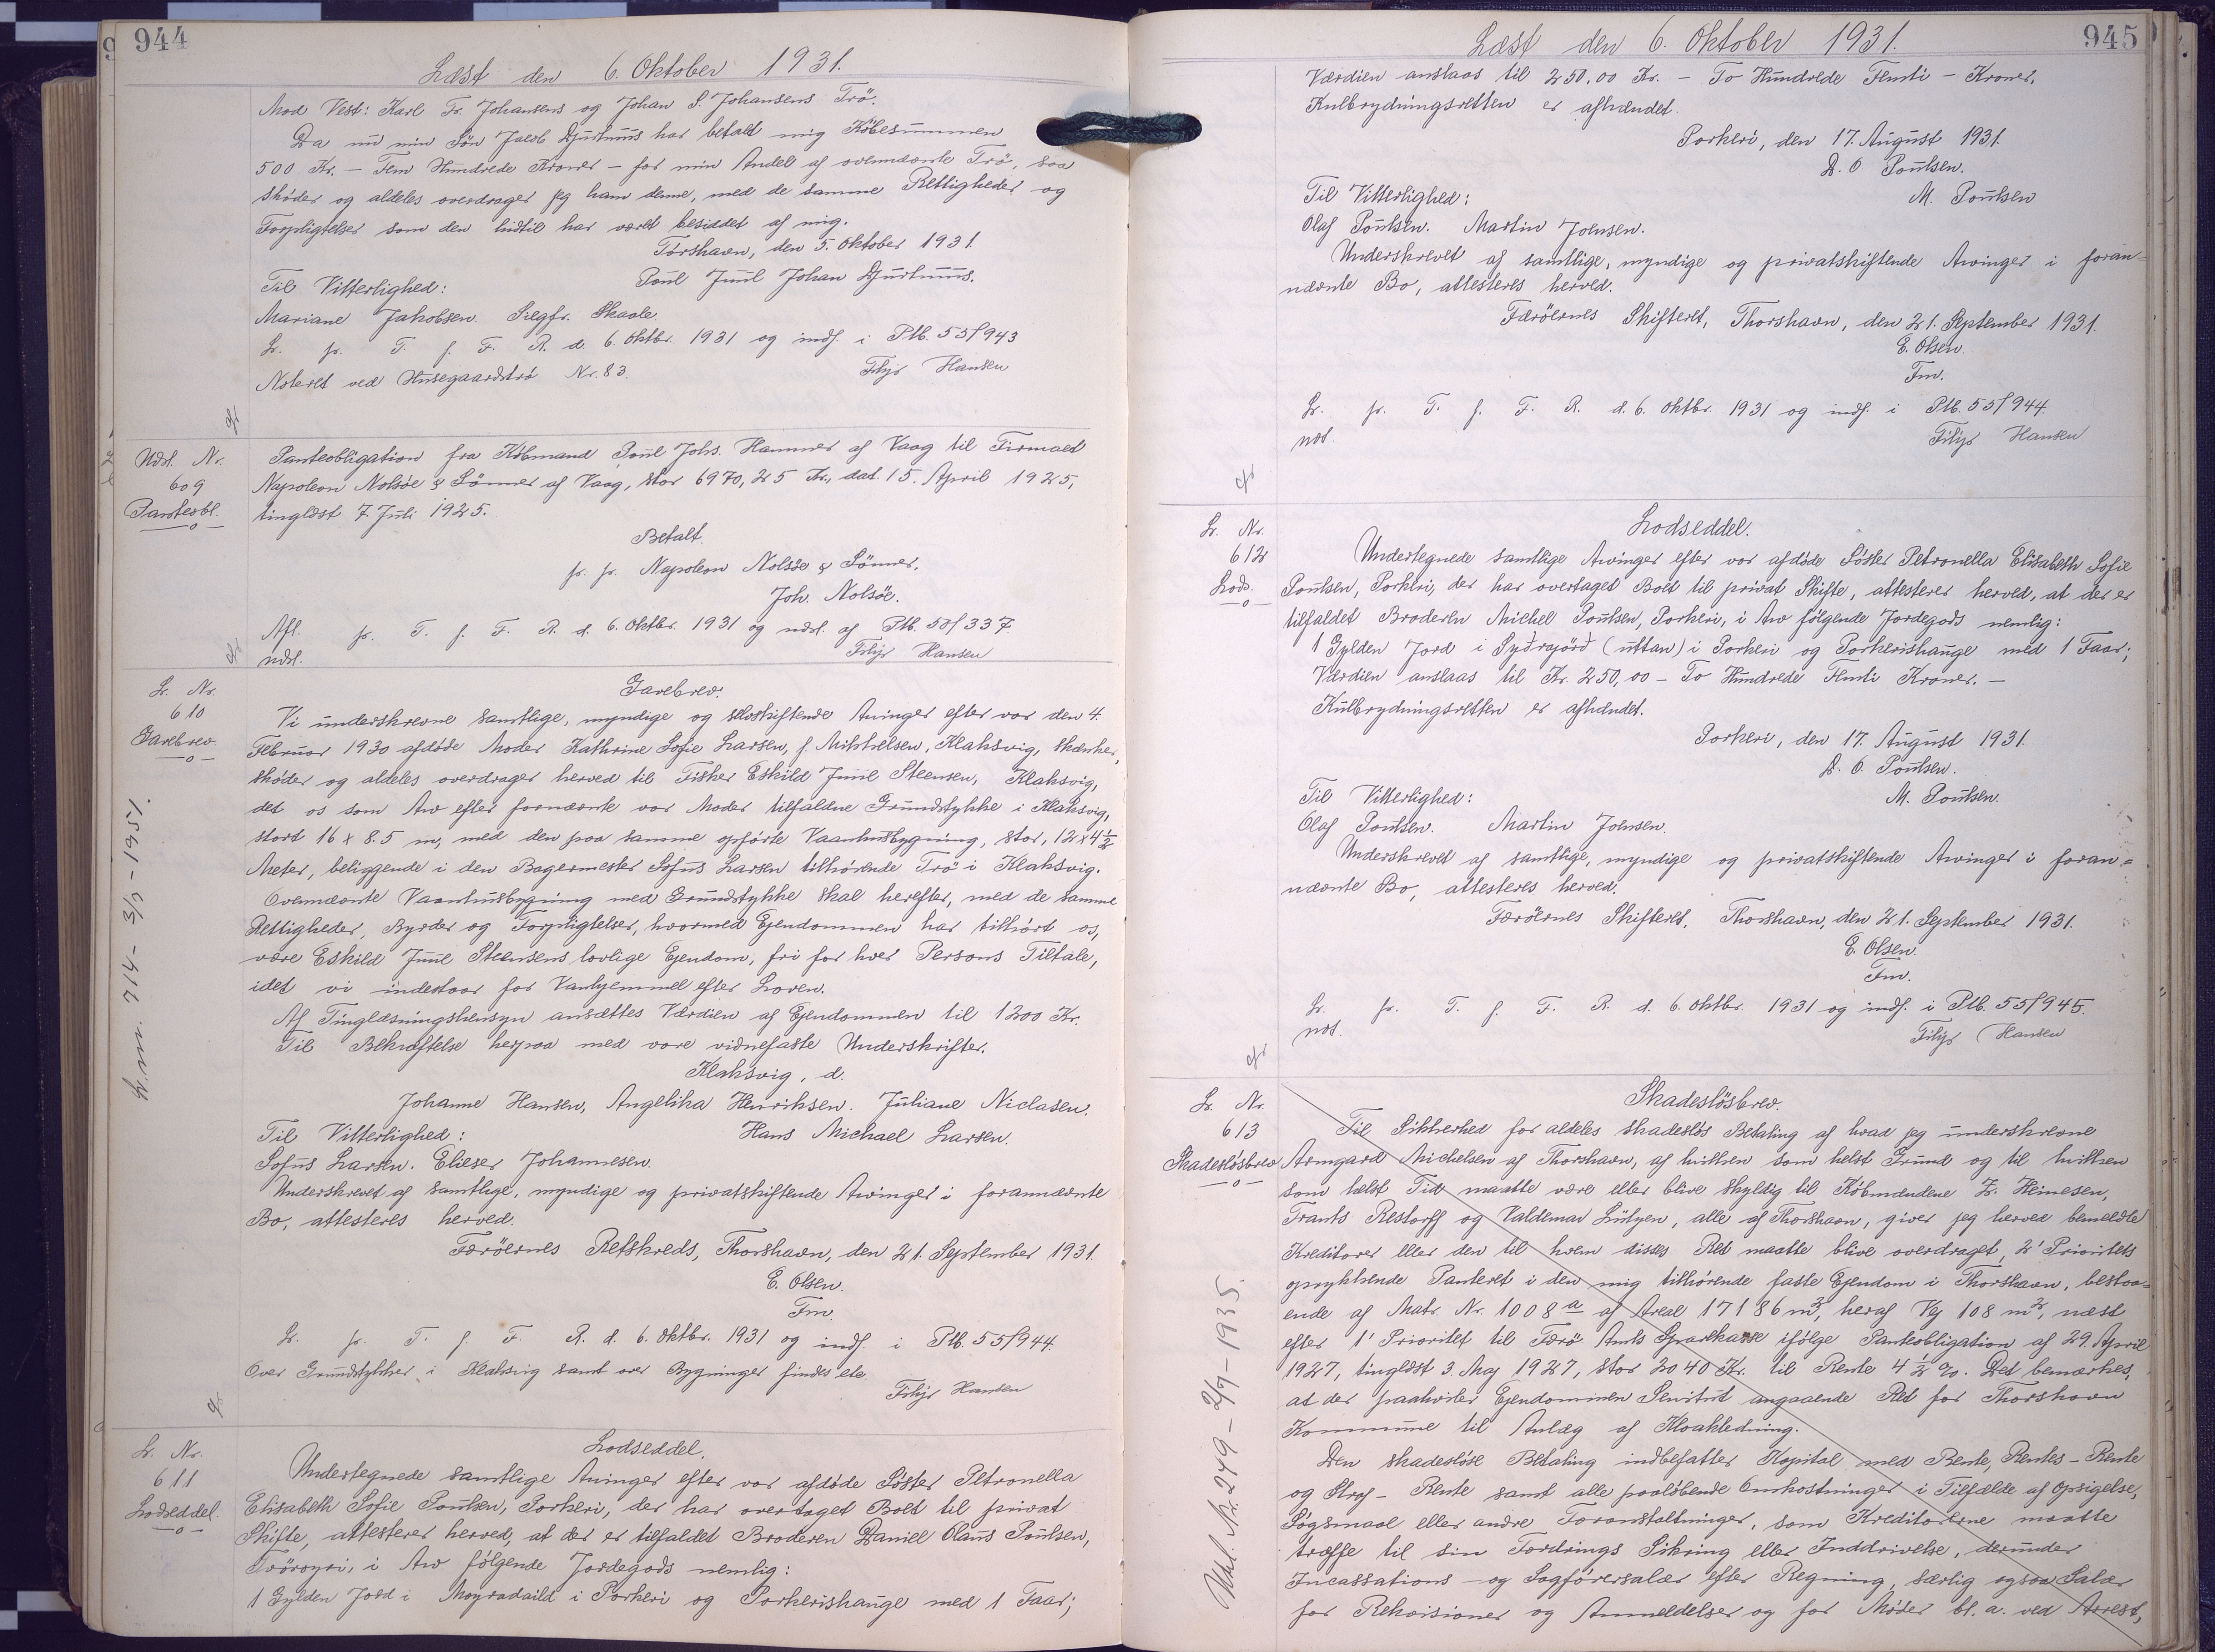 944
Læst den 6. Oktober 1931.
Mod Vest: Karl Fr. Johansens og Johan S. Johansens Trö.
Da nu min Sön Jacob Djurhuus har betalt mig Købesummen
500 Kr. – Fem Hundrede Kroner – for min Andel af ovennævnte Trö, saa
skøder og aldeles overdrager jeg ham denne, med de samme Rettigheder og
Forpligtelser som den hidtil har været besiddet af mig.
Tórshavn, den 5. Oktober 1931.
Til Vitterlighed: Poul Juul Johan Djurhuus.
Mariane Jakobsen. Siegfr. Skaale.
Lr. pr. T. f. F. R. d. 6. Oktbr. 1931 og indf. i Ptb. 55f943
Noteret ved Husegaardströ Nr. 83. Filip Hansen
Udsl. Nr.
609
Panteobl.
Panteobligation fra Købmand Poul Johs. Hammer af Vaag til Firmaet
Napoleon Nolsöe & Sönner af Vaag, stor 6970,25 Kr., dat. 15. April 1925,
tinglæst 7. Juli 1925.
Betalt.
pr. pr. Napoleon Nolsöe & Sönner.
Joh. Nolsöe.
Afl. pr. T. f. F. R. d. 6. Oktbr. 1931 og udsl. af Ptb. 50f337.
udsl. Filip Hansen
Lr. Nr.
610
Gavebrev.
Gavebrev.
Vi underskrevne samtlige, myndige og selvskiftende Arvinger efter vor den 4.
Februar 1930 afdøde Moder Kathrine Sofie Larsen, f. Mikkelsen, Klaksvig, skænker,
skøder og aldeles overdrager herved til Fisker Eskild Juul Steensen, Klaksvig,
det os som Arv efter fornævnte vor Moder tilfaldne Grundstykke i Klaksvig,
stort 16 x 8.5 m, med den paa samme opførte Vaanhusbygning, stor, 12 x 4½
Meter, beliggende i den Bagermester Sofus Larsen tilhørende Trö i Klaksvig.
Ovennævnte Vaanhusbygning med Grundstykke skal herefter, med de samme
Rettigheder, Byrder og Forpligtelser, hvormed Ejendommen har tilhört os,
være Eskild Juul Steensens lovlige Ejendom, fri for hver Persons Tiltale,
idet vi indestaar for Vanhjemmel efter Loven.
Af Tinglæsningshensyn ansættes Værdien af Ejendommen til 1200 Kr.
Til Bekræftelse herpaa med vore vidnefaste Underskrifter.
Klaksvig, d.
Johanne Hansen, Angelika Henriksen. Juliane Niclasen.
Til Vitterlighed: Hans Michael Larsen.
Sofus Larsen. Elieser Johannesen.
Underskrevet af samtlige, myndige og privatskiftende Arvinger i forannævnte
Bo, attesteres herved.
Færöernes Retskreds, Thorshavn, den 21. September 1931.
E. Olsen.
Fm.
Lr. pr. T. f. F. R. d. 6. Oktbr. 1931 og indf. i Ptb. 55f944.
Over Grundstykker i Klaksvig samt over Bygninger findes ete.
Filip Hansen
714 – 3/9 – 1951.
Lr. Nr.
611
Lodseddel.
Lodseddel.
Undertegnede samtlige Arvinger efter vor afdøde Söster Petronella
Elisabeth Sofie Poulsen, Porkeri, der har overtaget Boet til privat
Skifte, attesterer herved, at der er tilfaldet Broderen Daniel Olaus Poulsen,
Tvöroyri, i Arv følgende Jordegods nemlig:
1 Gylden Jord i Moyradaild i Porkeri og Porkerishauge med 1 Faar;
945
Læst den 6. Oktober 1931.
Værdien anslaas til 250.00 Kr. – To Hundrede Femti – Kroner.
Kulbrydningsretten er afhændet.
Porkeri, den 17. August 1931.
D. O Poulsen.
Til Vitterlighed: M. Poulsen
Olaf Poulsen. Martin Joensen.
Underskrevet af samtlige, myndige og privatskiftende Arvinger i foran-
nævnte Bo, attesteres herved.
Færöernes Skifteret, Thorshavn, den 21. September 1931.
E. Olsen.
Fm.
Lr. pr. T. f. F. R. d. 6. Oktbr. 1931 og indf. i Ptb. 55f944.
not. Filip Hansen
Lr. Nr.
612
Lods.
Lodseddel.
Undertegnede samtlige Arvinger efter vor afdøde Söster Petronella Elisabeth Sofie
Poulsen, Porkeri, der har overtaget Boet til privat Skifte, attesterer herved, at der er
tilfaldet Broderen Michel Poulsen, Porkeri, i Arv følgende Jordegods nemlig:
1 Gylden Jord i Sydrajörd (uttan) i Porkeri og Porkerishauge med 1 Faar;
Værdien anslaas til Kr. 250,00 – To Hundrede Femti Kroner. –
Kulbrydningsretten er afhændet.
Porkeri, den 17. August 1931.
D. O. Poulsen.
Til Vitterlighed: M. Poulsen.
Olaf Poulsen. Martin Joensen.
Underskrevet af samtlige, myndige og privatskiftende Arvinger i foran-
nævnte Bo, attesteres herved.
Færöernes Skifteret, Thorshavn, den 21. September 1931.
E. Olsen.
Fm.
Lr. pr. T. f. F. R. d. 6. Oktbr. 1931 og indf. i Ptb. 55f945.
not. Filip Hansen
Lr. Nr.
613
Skadesløsbrev
Skadesløsbrev.
Til Sikkerhed for aldeles skadesløs Betaling af hvad jeg underskrevne
Armgard Michelsen af Thorshavn, af hvilken som helst Grund og til hvilken
som helst Tid maatte være eller blive skyldig til Købmændene Z. Heinesen,
Frants Restorff og Valdemar Lützen, alle af Thorshavn, giver jeg herved bemeldte
Kreditorer eller den til hvem disses Ret maatte blive overdraget, 2' Prioritets
oprykkende Panteret i den mig tilhörende faste Ejendom i Thorshavn, bestaa-
ende af Matr. Nr. 1008 a af Areal 17186 m², heraf Vej 108 m², næst
efter 1' Prioritet til Færö Amts Sparekasse ifölge Panteobligation af 29. April
1927, tinglæst 3. Maj 1927, stor 2040 Kr. til Rente 4½ %. Det bemærkes,
at der paahviler Ejendommen Servitut angaaende Ret for Thorshavn
Kommune til Anlæg af Kloakledning.
Den skadesløse Betaling indbefatter Kapital med Rente, Rentes-Rente
og Straf-Rente samt alle paaløbende Omkostninger i Tilfælde af Opsigelse,
Søgsmaal eller andre Foranstaltninger, som Kreditorerne maatte
træffe til sin Fordrings Sikring eller Inddrivelse, derunder
Incassations- og Sagförersalær efter Regning, særlig ogsaa Salær
for Rekvisioner og Anmeldelser og for Møder bl. a. ved Arrest,
Udsl. Nr. 249 – 2/9 – 1935.